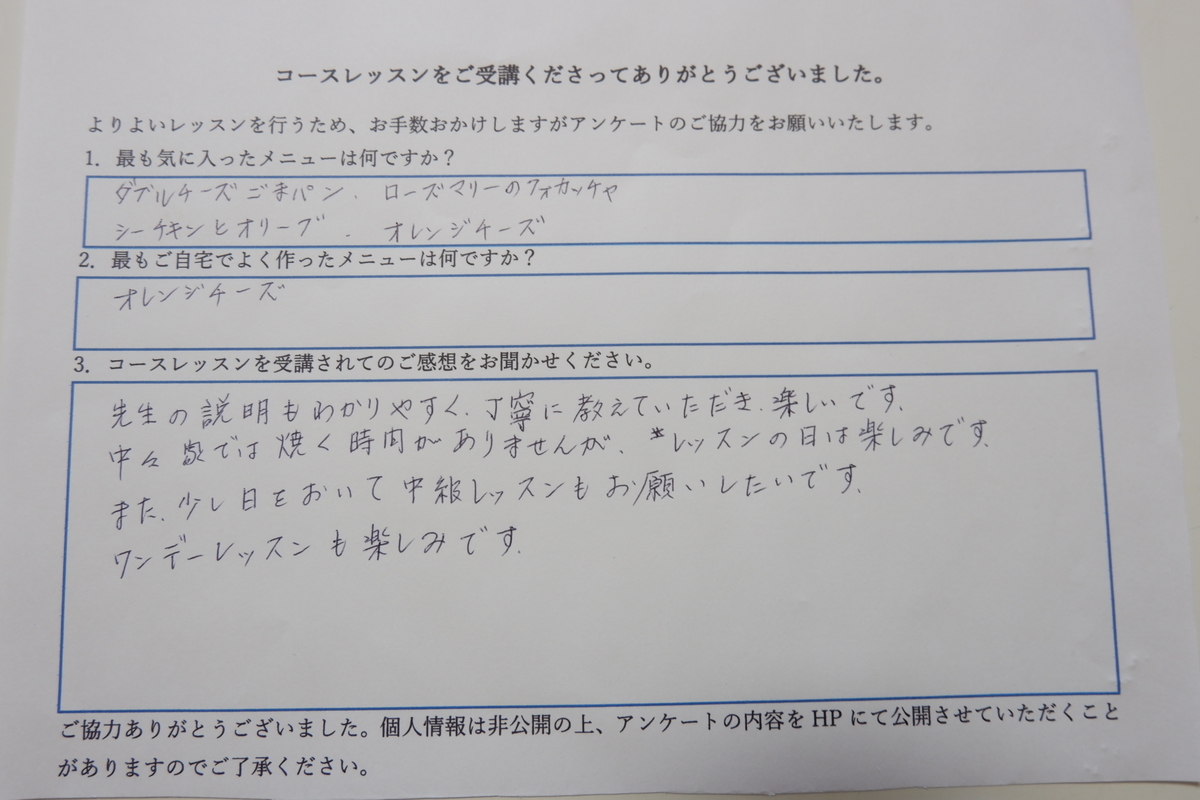 コースレッスンをご受講くださってありがとうございました。
よりよいレッスンを行うため、お手数おかけしますがアンケートのご協力をお願いいたします。
1．最も気に入ったメニューは何ですか？
ダブルチーズごまパン、ローズマリーのフォカッチャ
シーチキンとオリーブ、オレンジチーズ
2．最もご自宅でよく作ったメニューは何ですか？
オレンジチーズ
3．コースレッスンを受講されてのご感想をお聞かせください。
先生の説明もわかりやすく、丁寧に教えていただき、楽しいです。
中々家では焼く時間がありませんが、*レッスンの日は楽しみです。
また、少し日をおいて中級レッスンもお願いしたいです。
ワンデーレッスンも楽しみです。
ご協力ありがとうございました。個人情報は非公開の上、アンケートの内容をHPにて公開させていただくこと
がありますのでご了承ください。